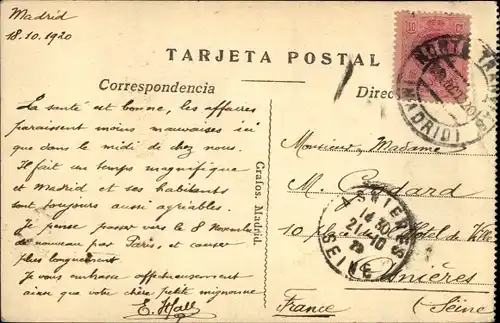 Madrid
18.10.1920
TARJETA POSTAL
Correspondencia
La santé est bonne, les affaires
paraissent moins mauvaises ici
que dans le midi de chez nous.
Il fait un temps magnifique
et Madrid et ses habitants
sont toujours aussi agréables.
Je pense passer vers le 8 Novembre
de nouveau par Paris, et causer
plus longuement
Je vous embrasse affectueusement
ainsi que votre chère petite mignonne
E. Hall
Grafos. Madrid.
10
NORTE
(MADRID)
Direc
Monsieur Madame
M.
10 place de l'Hôtel de Ville
Asnières
(Seine
France
ASNIERES
14 30
21 -10
SEINE